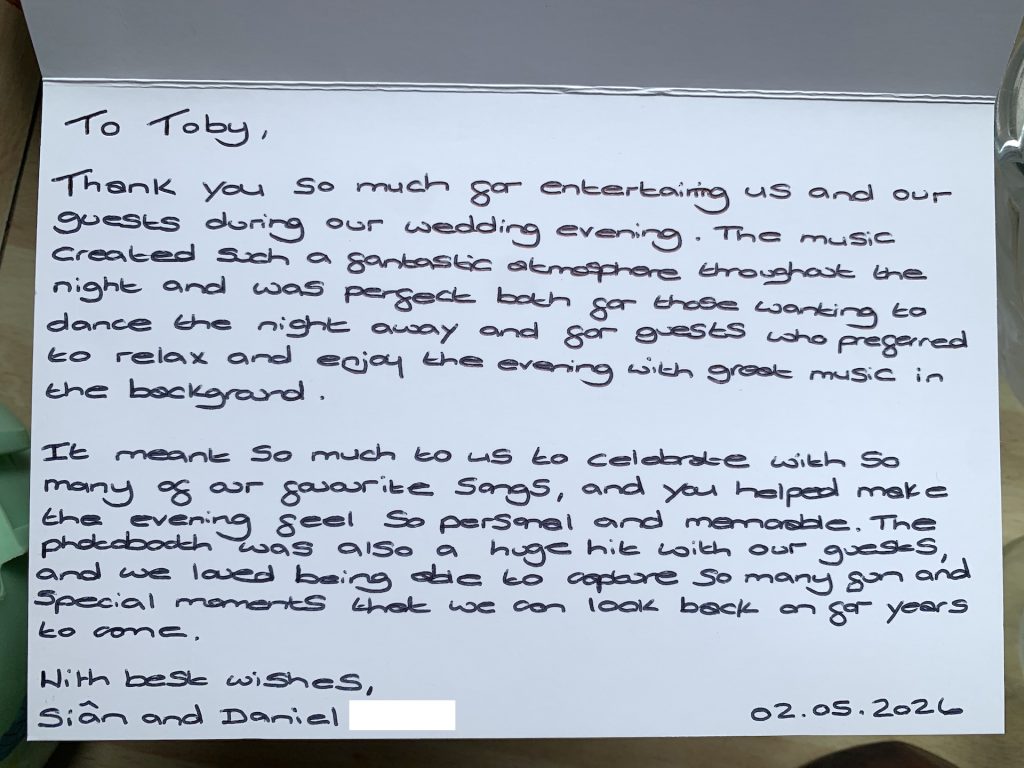 To Toby,
Thank you so much for entertaining us and our
guests during our wedding evening. The music
created such a fantastic atmosphere throughout the
night and was perfect both for those wanting to
dance the night away and for guests who preferred
to relax and enjoy the evening with great music in
the background.
It meant so much to us to celebrate with so
many of our favourite songs, and you helped make
the evening feel so personal and memorable. The
photobooth was also a huge hit with our guests,
and we loved being able to capture so many fun and
special moments that we can look back on for years
to come.
With best wishes,
Siân and Daniel
02.05.2026